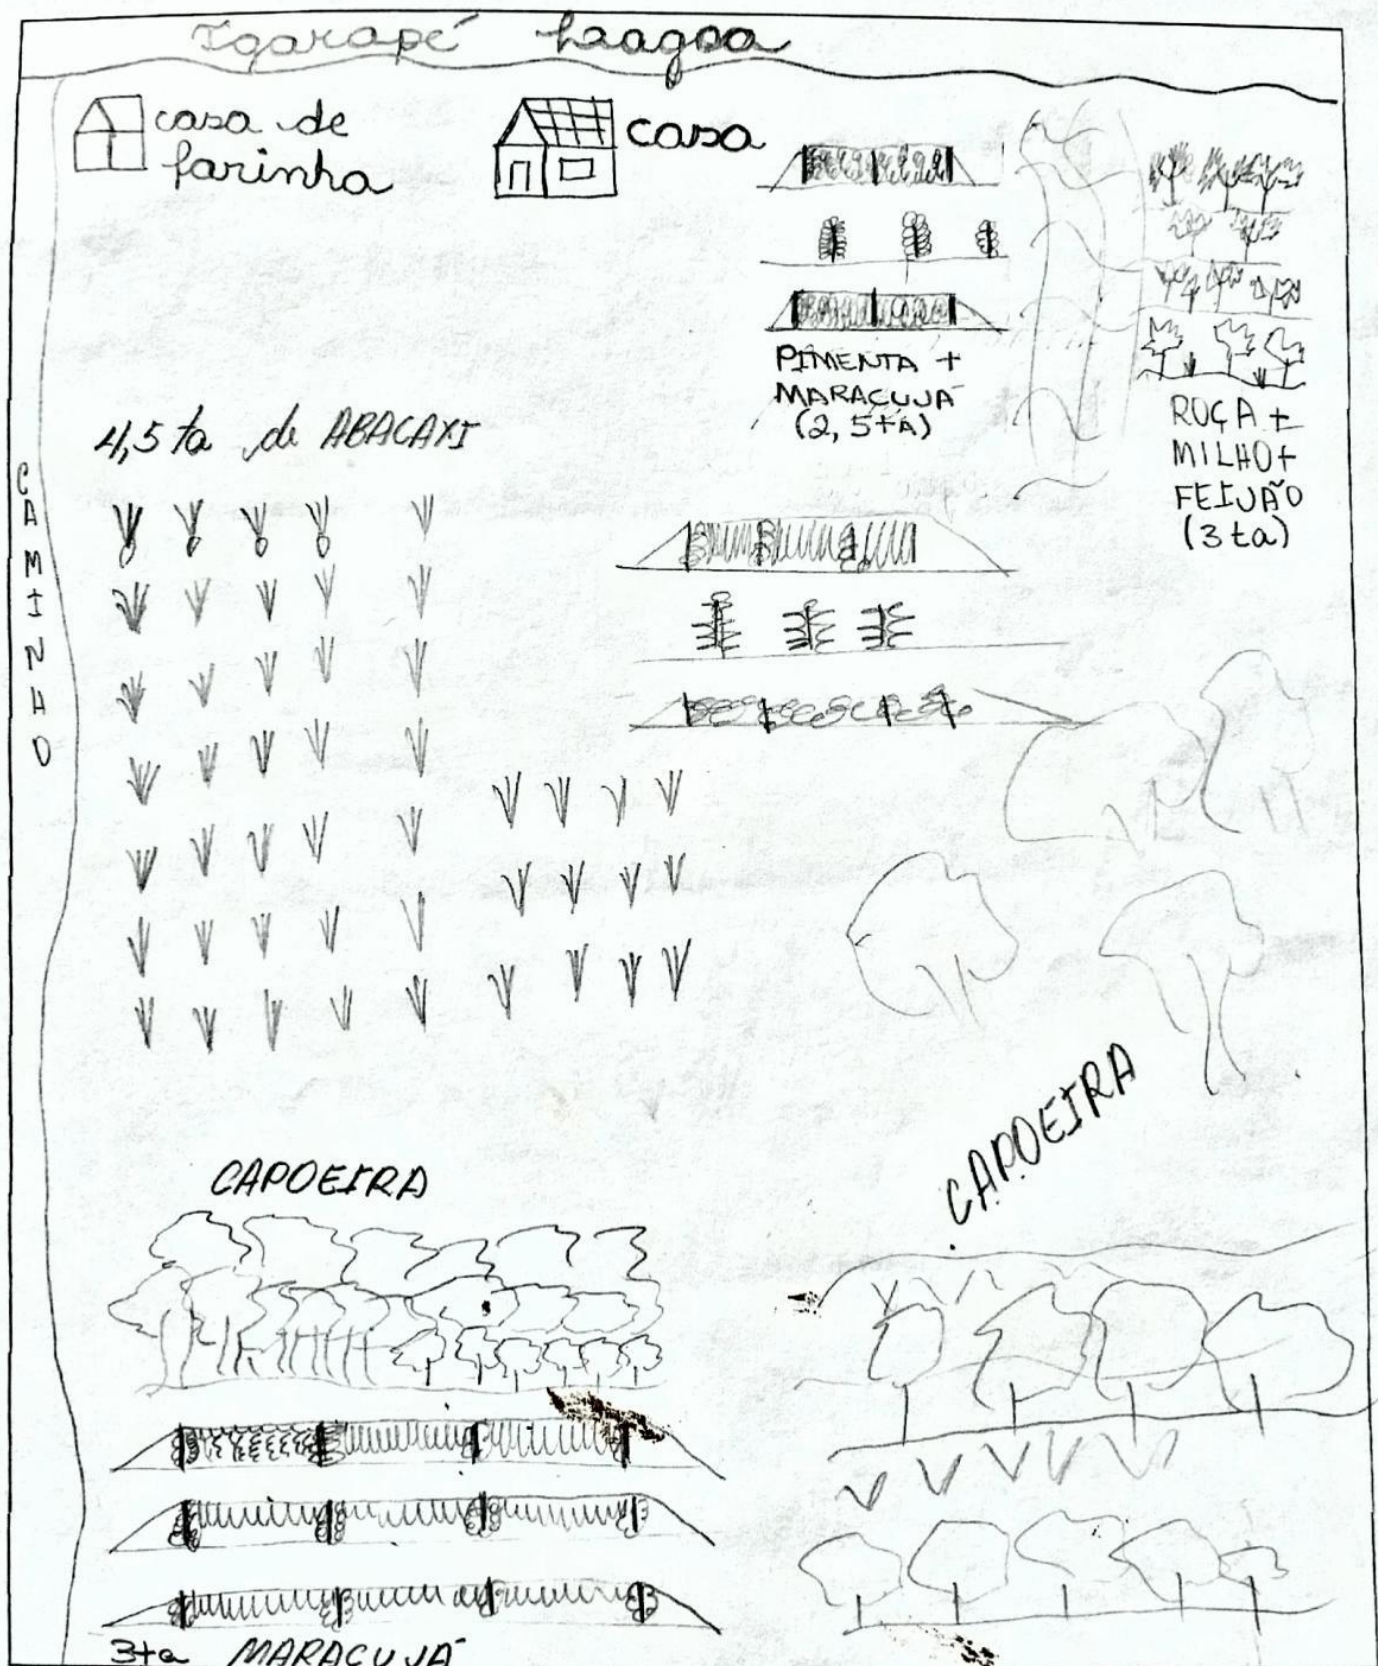 Igarapé Lagoa
casa de
farinha
casa
PIMENTA +
MARACUJÁ
(2,5 ta)
ROÇA +
MILHO +
FEIJÃO
(3 ta)
4,5 ta de ABACAXI
CAMINHO
CAPOEIRA
CAPOEIRA
3ta MARACUJÁ